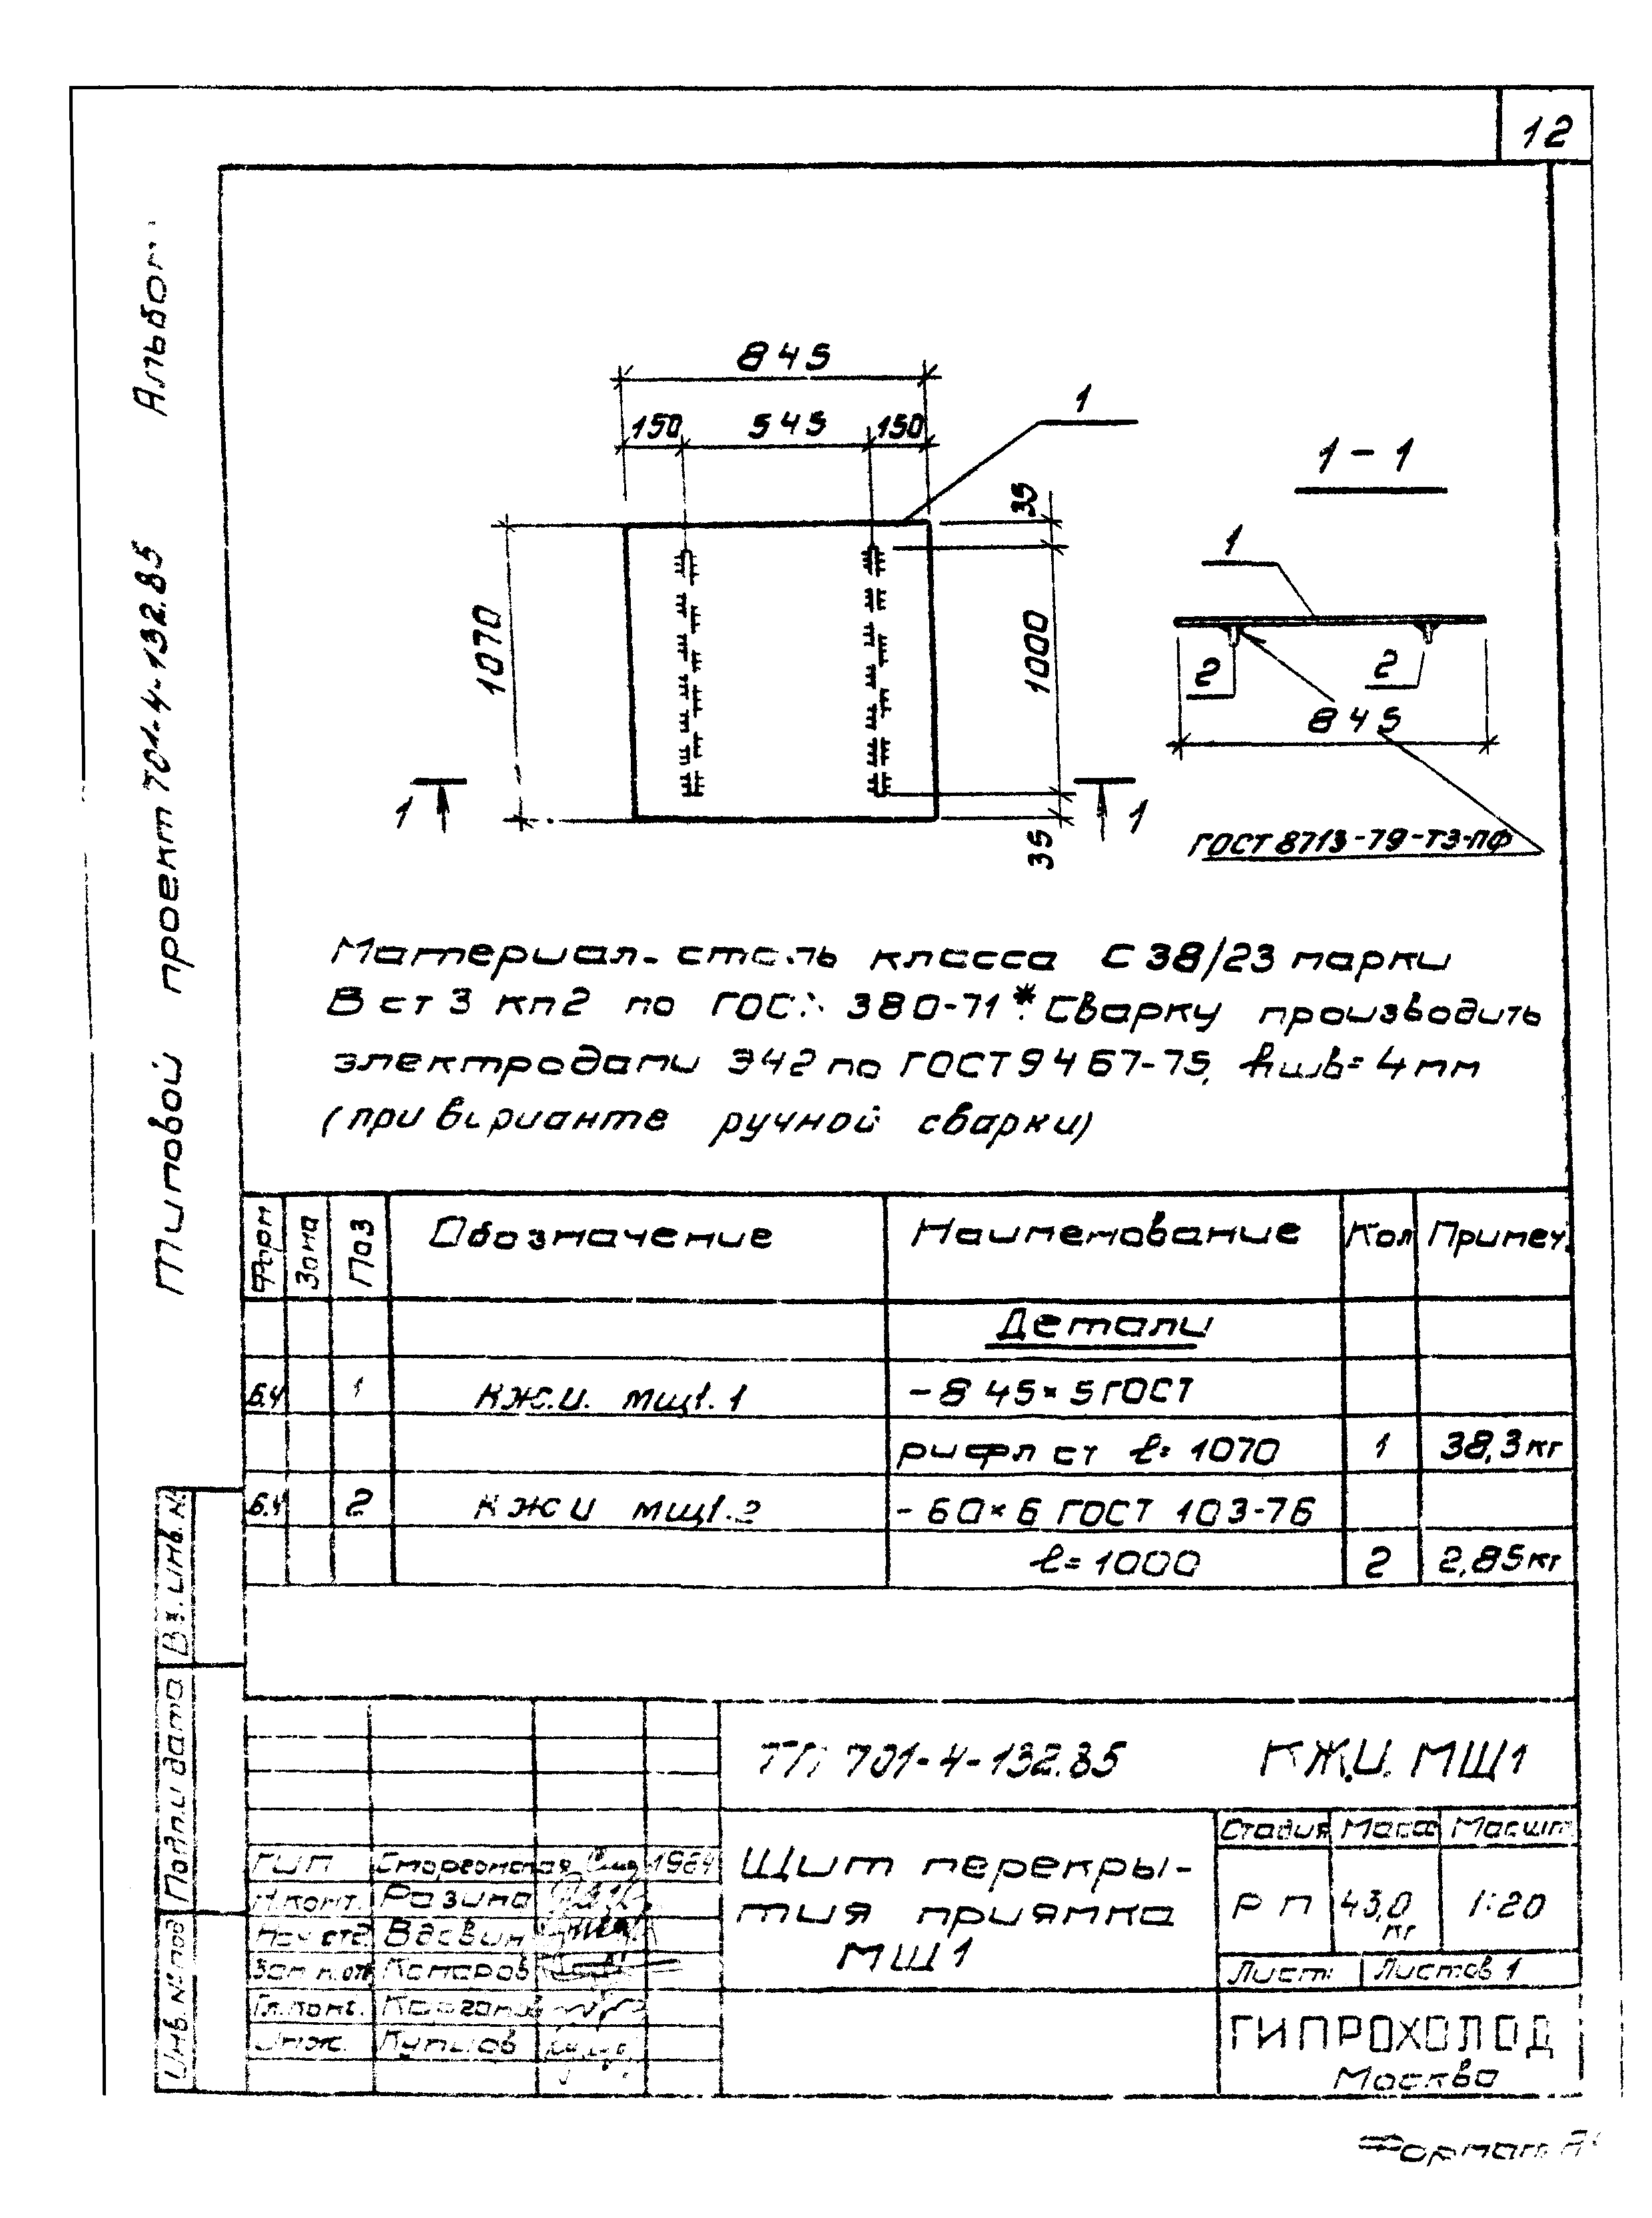 12
Типовой проект 701-4-132.85
845
150 545 150
1
35
1070
1000
35
1
1
1-1
1
2
2
845
ГОСТ 8713-79-Т3-ПФ
Материал - сталь класса С 38/23 марки
В ст 3 кп2 по ГОСТ 380-71*. Сварку производить
электродами Э42 по ГОСТ 9467-75, hшв=4мм
(при варианте ручной сварки)
Форм Зона Поз Обозначение Наименование Кол Примеч.
Детали
Б.Ч 1 КЖ.И. МЩ1.1 -845×5 ГОСТ
рифл ст ℓ=1070 1 38,3кг
Б.Ч 2 КЖИ МЩ1.2 -60×6 ГОСТ 103-76
ℓ=1000 2 2,85кг
Вз. инв. №
Подп. и дата
Инв. № под
ТП 701-4-132.85 КЖ.И. МЩ1
Стадия Масса Масшт
РП 43,0 кг 1:20
Лист Листов 1
Щит перекры-
тия приямка
МЩ1
ГИП 1984
Н.конт. Разина
Нач отд
Гл.конс.
Инж. Купцов
ГИПРОХОЛОД
Москва
Формат